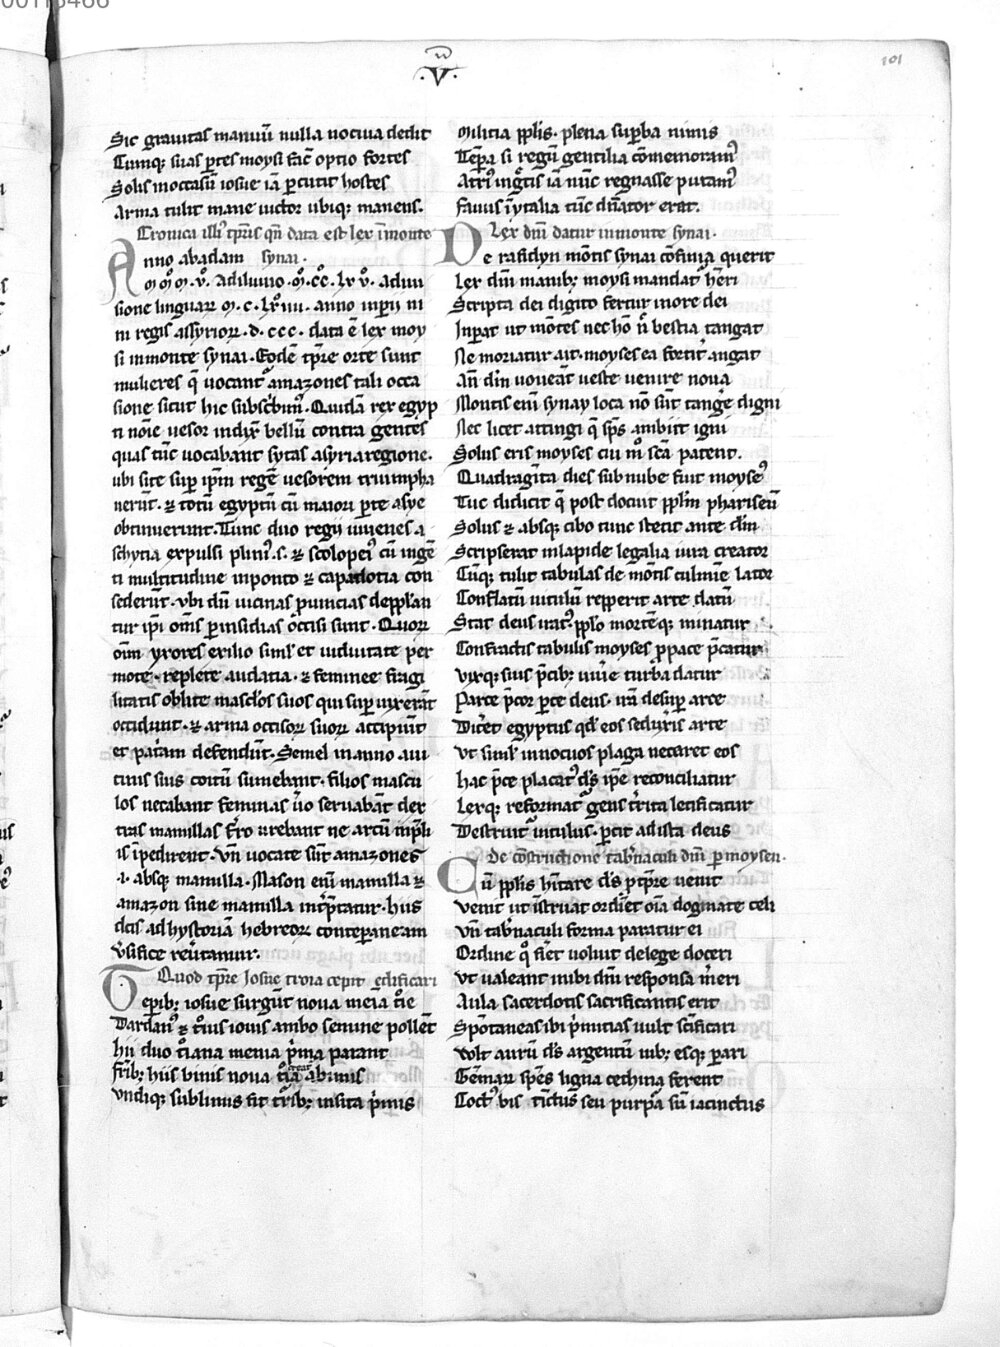 101
.V.
Sic grauitas manuū nulla nociua dedit
Tumq; suas ꝑtes moysi fac̄ optio fortes
Solis inoccasū iosue iā ꝑcutit hostes
Arma tulit mane uictor ubiq; manens.
Cronica illiꝰ tꝑris qn̄ data est lex īmonte
Anno abadam synai.
sione linguaꝝ
ni regis assyrioꝝ .d.ccc. data ē lex moy
si inmonte synai. Eodē tꝑre orte sunt
mulieres q̄ uocantᷣ amazones tali occa
sione sicut hic subscͥbimꝰ. Quidā rex egyp
ti noīe uesor indix̄ bellū contra gentes
quas tūc uocabant sytas asyria regione.
ubi site suꝑ ip̄m regē uesorem triumpha
uerūt. & totū egyptū cū maiori ꝑte asye
obtinuerunt. Tunc duo regii iuuenes a
schytia expulsi pliniꝰ .s. & scolopeiꝰ cū ingē
ti multitudine inponto & capadotia con
sederūt. vbi dū uicinas ꝓuincias deppl̄an
tur ip̄i om̄s ꝑ insidias occisi sunt. Quoꝝ
om̄ uxores exilio siml̓ et uiduitate per
mote. replete audatia. & feminee fragi
litatis oblite mascl̓os suos qui suꝑuixerāt
occidunt. & arma occisoꝝ suoꝝ accipiūt
et patͥam defendūt. Semel in anno aui
cinis suis coitū sumebant. filios mascu
los necabant feminas ūo seruabāt dex
tras mamillas fͤro urebant ne arcū
īpedirent. Vn̄ uocate sūt amazones
.i. absque mamilla. Mason enī mamilla &
amazon sine mamilla int̄p̄tatur. hus
dcīs ad hystoriā hebreoꝝ conteꝑaneam
ūsifice reūtamur.
Quod tꝑre Josue troia cepit edificari
Teꝑib; iosue surgūt noua menia t̄ie
Dardanꝰ & tͦius iouis ambo semine pollēt
hii duo tͦiana menia pͥma parant
frīb; hiis binis noua tͦia
vndiq; sublimis fit uisita pͥmis
Militia ppl̄is. plena suꝑba nimis
Teꝑa si regū gentilia cōmemoramꝰ
iā nūc regnasse putamꝰ
Faunus īytalia tūc dn̄ator erat.
Lex dn̄i datur inmonte synai.
De rafidyn mōtis synai cōfinia querit
Lex dn̄i manib; moysi mandatᷣ hr̄i
Scripta dei digito fertur inore dei
Inpat̄ ut mōtes nec hō n̄ bestia tangat
Ne moriatur ait moyses ea fortit̄ angat
An̄ dīn uoueāt ueste uenire noua
Montis enī synay loca nō sūt tangē digni
Nec licet attingi q̄ sp̄s ambiit igni
Solus eris moyses cui scā patent.
Quadragīta dies sub nube fuit moyseꝰ
Tūc didicit q̄ post docuit ppl̄m phariseū
Solus & absq; cibo tunc stetit ante dīn
Scripserat inlapide legalia iura creator
Cūq; tulit tabulas de mōtis culmine lator
Conflatū uitulū repperit arte datū
Stat deus iratꝰ ppl̄o mortēq; minatur
Confractis tabulis moyses ꝓpace p̄catur
Virq; suis p̄cib; turba datur
Parce p̄cor ꝑce deus. desuꝑ arce
Dicēt egyptus qd̄ eos seduxis arte
Vt simil̓ innocuos plaga necaret eos
hac p̄ce placatꝰ ds̄ ip̄e reconciliatur
Lexq; reformatᷣ gens letificatur
Destruitᷣ uitulus. ꝑcit ad ista deus
De cōstructione tab̄naculi dn̄i ꝑ moysen.
Cū ppl̄is hītare ds̄ uenit
Venit ut īstruat ordīet oīa dogmate celi
Vn̄ tab̄naculi forma paratur ei
Ordine qͦ fīet uoluit delege doceri
Vt ualeant inibi dn̄i responsa m̄eri
Aula sacerdotis sacrificantis erit
Spōtaneas ibi pͥmitias uult sc̄ificari
Volt aurū ds̄ argentū iub; esq; pari
Gēmaꝝ sp̄es ligna cethina ferent
Coctꝰ bis tīctus seu purpᷓa sū iacinctus